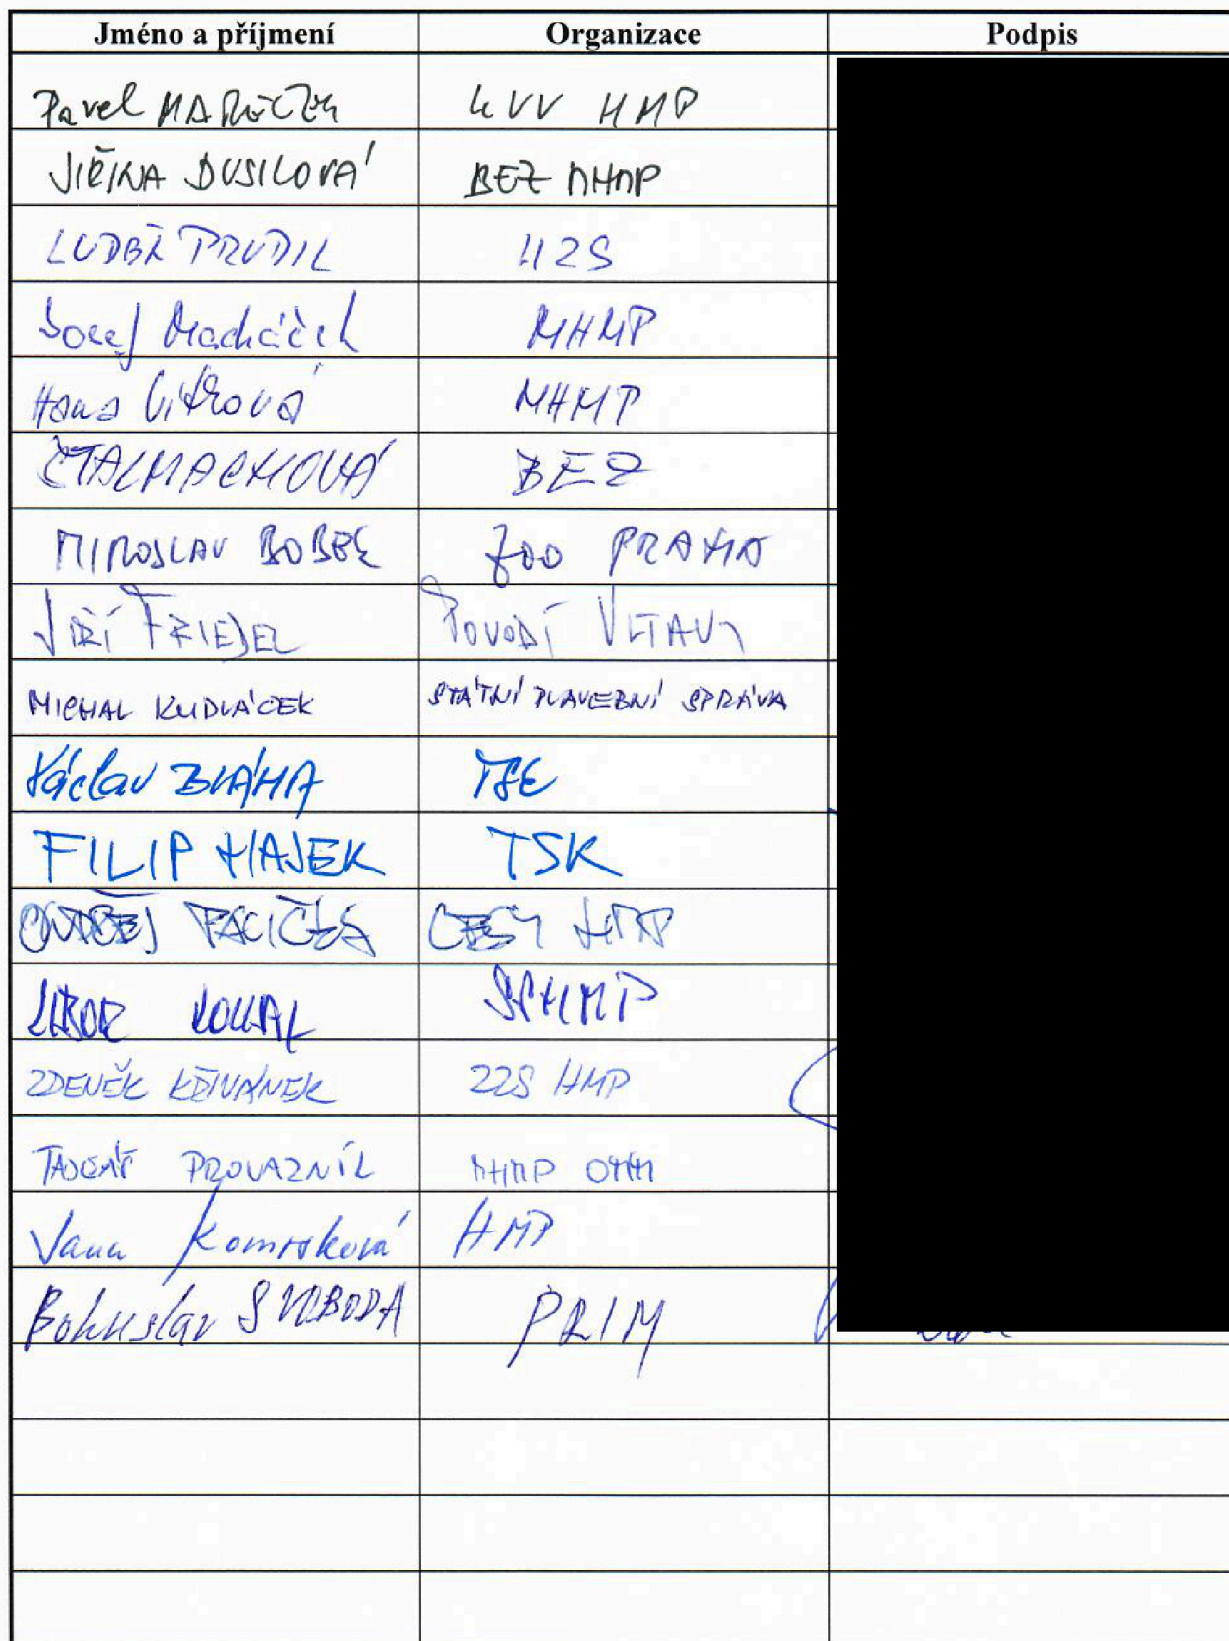 Jméno a příjmení Organizace Podpis
Pavel KVV HMP
JIŘINA DUSILOVÁ BEZ MHMP
LUDĚK PRUDIL HZS
Josef Macháček MHMP
Hana Vítková MHMP
ŠTALMACHOVÁ BEZ
MIROSLAV BOBEK ZOO PRAHA
JIŘÍ FRIEDEL POVODÍ VLTAVY
MICHAL KUDLÁČEK STÁTNÍ PLAVEBNÍ SPRÁVA
Václav BLÁHA TSK
FILIP HÁJEK TSK
ONDŘEJ PALIČKA LESY HMP
LIBOR KOUKAL SPHMP
ZDENĚK KŘIVÁNEK ZZS HMP
TADEÁŠ PROVAZNÍK MHMP
Jana Komrsková HMP
Bohuslav SVOBODA PRIM